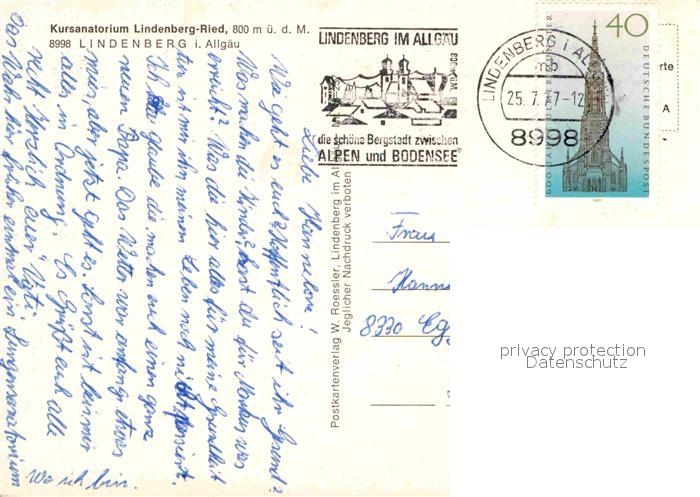 Kursanatorium Lindenberg-Ried, 800 m ü. d. M.
8998 LINDENBERG i. Allgäu
LINDENBERG IM ALLGÄU
die schöne Bergstadt zwischen
ALPEN und BODENSEE
LINDENBERG i. ALLG
mb
25.7.77-12
8998
40
DEUTSCHE BUNDESPOST
600 JAHRE ULMER MÜNSTER
1977
rte
A
Postkartenverlag W. Roessler, Lindenberg im Al
Jeglicher Nachdruck verboten
Liebe Hannelore!
Wie geht es euch? Hoffentlich seit ihr Gesund?
Was machen die Kinder, hast du für Markus was
erreicht? Was die hier alles für meine Gesundheit
tun ist mir in meinem Leben noch nie passiert.
Ich glaube die machen aus einen ganz
neuen Papa. Das Wetter war anfangs etwas
mies aber jetzt geht es. Sonst ist bei mir
alles in Ordnung. Es Grüßt euch alle
recht Herzlich euer
Das War hier früher einmal ein Lungensanatorium
Wo ich bin.
Frau
Hann
8330 Eg
privacy protection
Datenschutz